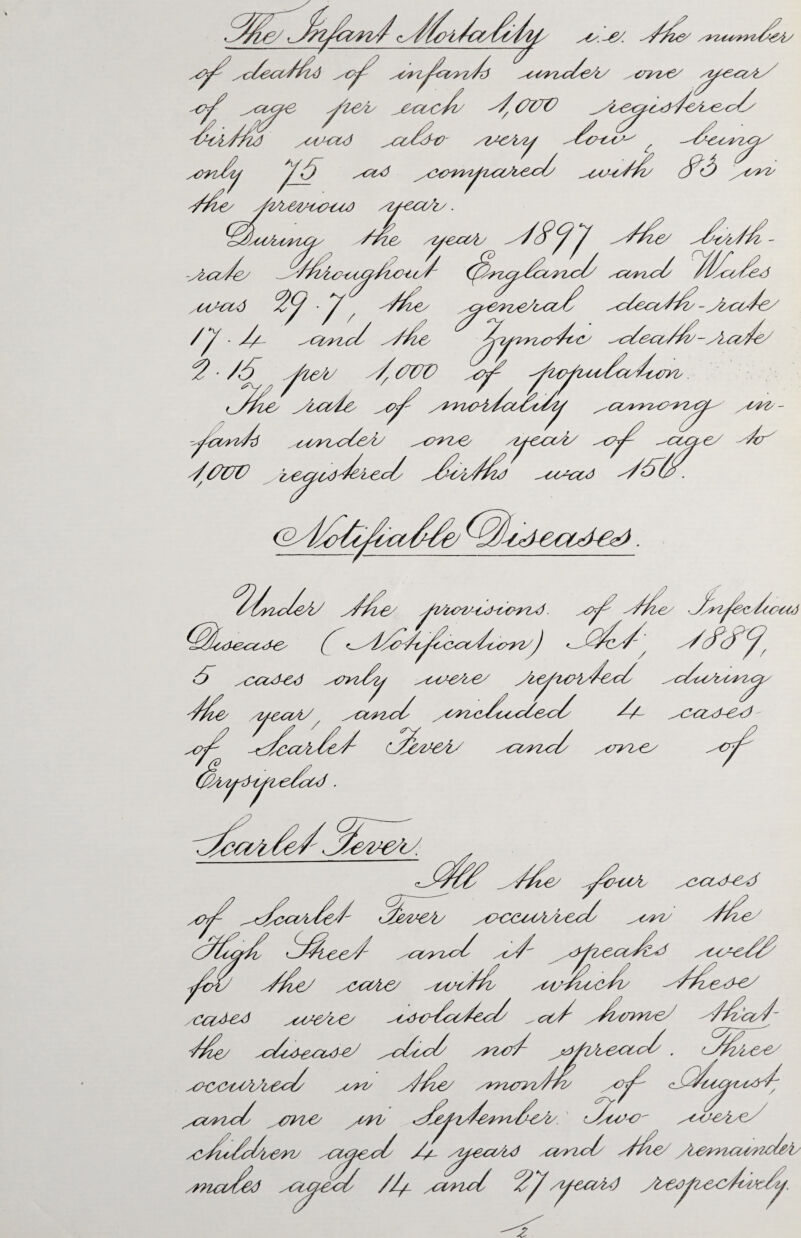 The Infant Mortality i.e. the number
of deaths of infants under one year
of age per each 1,000 registered
births was also very low, being
only 75 as compared with 83 in
the previous year.
During the year 1897 the birth-
-rate throughout England and Wales
was 29.7, the general death-rate
17.4 and the Zymotic death-rate
2.15 per 1,000 of population.
The rate of mortality among in-
-fants under one year of age to
1,000 registered births was 156.
Notifiable Diseases.
Under the provisions of the Infectious
Disease (Notification) Act, 1889,
5 cases only were reported during
the year, and included 4 cases
of Scarlet Fever and one of
Erysipelas.
Scarlet Fever.
All the four cases
of Scarlet Fever occurred in the
High Street and it speaks well
for the care with which these
cases were isolated at home that
the disease did not spread. Three
occurred in the month of August,
and one in September. Two were
children aged 4 years and the remainder
males aged 14 and 27 years respectively.
2